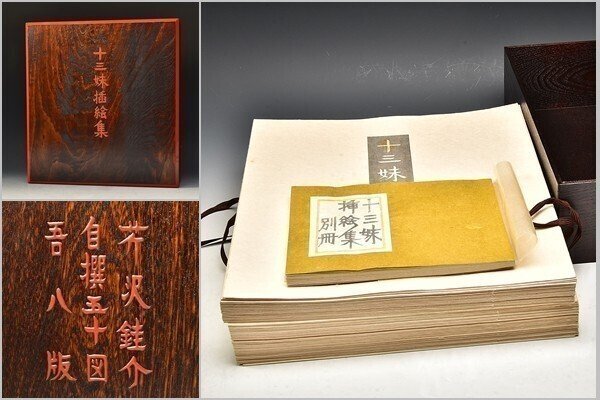 十三妹挿絵集
芹沢銈介
自撰五十図
吾八版
十三妹
十三妹
挿絵集
別冊